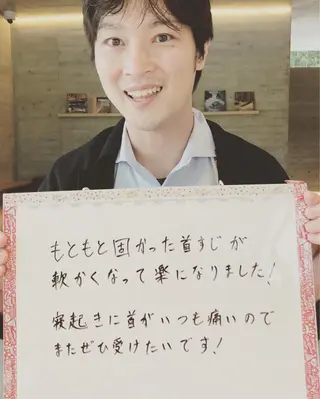 もともと固かった首すじが
軟かくなって楽になりました!
寝起きに首がいつも痛いので
またぜひ受けたいです!